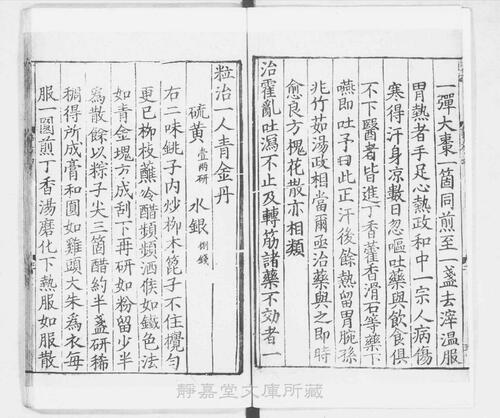 一彈大棗一箇同煎至一盞去滓溫服
胃熱者手足心熱政和中一宗人病傷
寒得汗身凉數日忽嘔吐藥與飲食俱
不下醫者皆進丁香藿香滑石等藥下
嚥即吐予曰此正汗後餘熱留胃脘孫
兆竹茹湯政相當爾亟治藥與之即時
愈良方槐花散亦相類
治霍亂吐瀉不止及轉筋諸藥不効者一
粒治一人青金丹
硫黄 壹兩研 水銀 捌錢
右二味銚子內炒柳木篦子不住攪勻
更已柳枝蘸冷醋頻頻洒候如鐵色法
如青金塊方成刮下再研如粉留少半
爲散餘以粽子尖三箇醋約半盞研稀
稠得所成膏和圓如雞頭大朱爲衣每
服一圓煎丁香湯磨化下熱服如服散
靜嘉堂文庫所藏